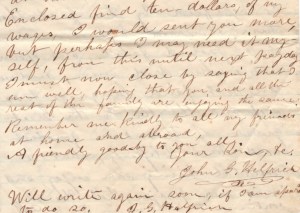 Enclosed find ten dollars, of my
wages, I would sent you more
but perhaps I may need it my-
self, from this until next payday
I must now close by saying that I
am well, hoping that you, and all the
rest of the family are enjoying the same.
Remember me kindly to all my friends
at home and abroad,
A friendly goodby to you all
Your
John G. Helprick
Will write again soon, if I am spared
to do so. J. G. Helprick